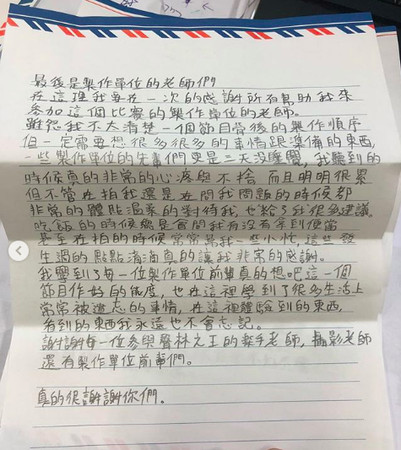 最後是製作單位的老師們
在這裡我要在一次的感謝所有幫助我來
參加這個比賽的製作單位的老師。
雖然我不太清楚一個節目背後的製作順序
但一定需要想很多很多的事情跟準備的東西
一些製作單位的先輩們更是二天沒睡覺，我聽到的
時候真的非常的心疼與不捨，而且明明很累
但不管在拍我還是在問我問題的時候都
非常的體貼溫柔的對待我，也給了我很多建議
吃飯的時候總是會問我有沒有拿到便當
甚至在拍的時候常常幫我一些小忙，這些發
生過的點點滴滴真的讓我非常的感謝。
我學到了每一位製作單位前輩真的想把這一個
節目作好的態度，也在這裡學到了很多生活上
常常被遺忘的事情，在這裡體驗到的東西，
看到的東西我永遠也不會忘記。
謝謝每一位參與層林大王的 老師，攝影老師
還有製作單位前輩們。
真的很謝謝你們。